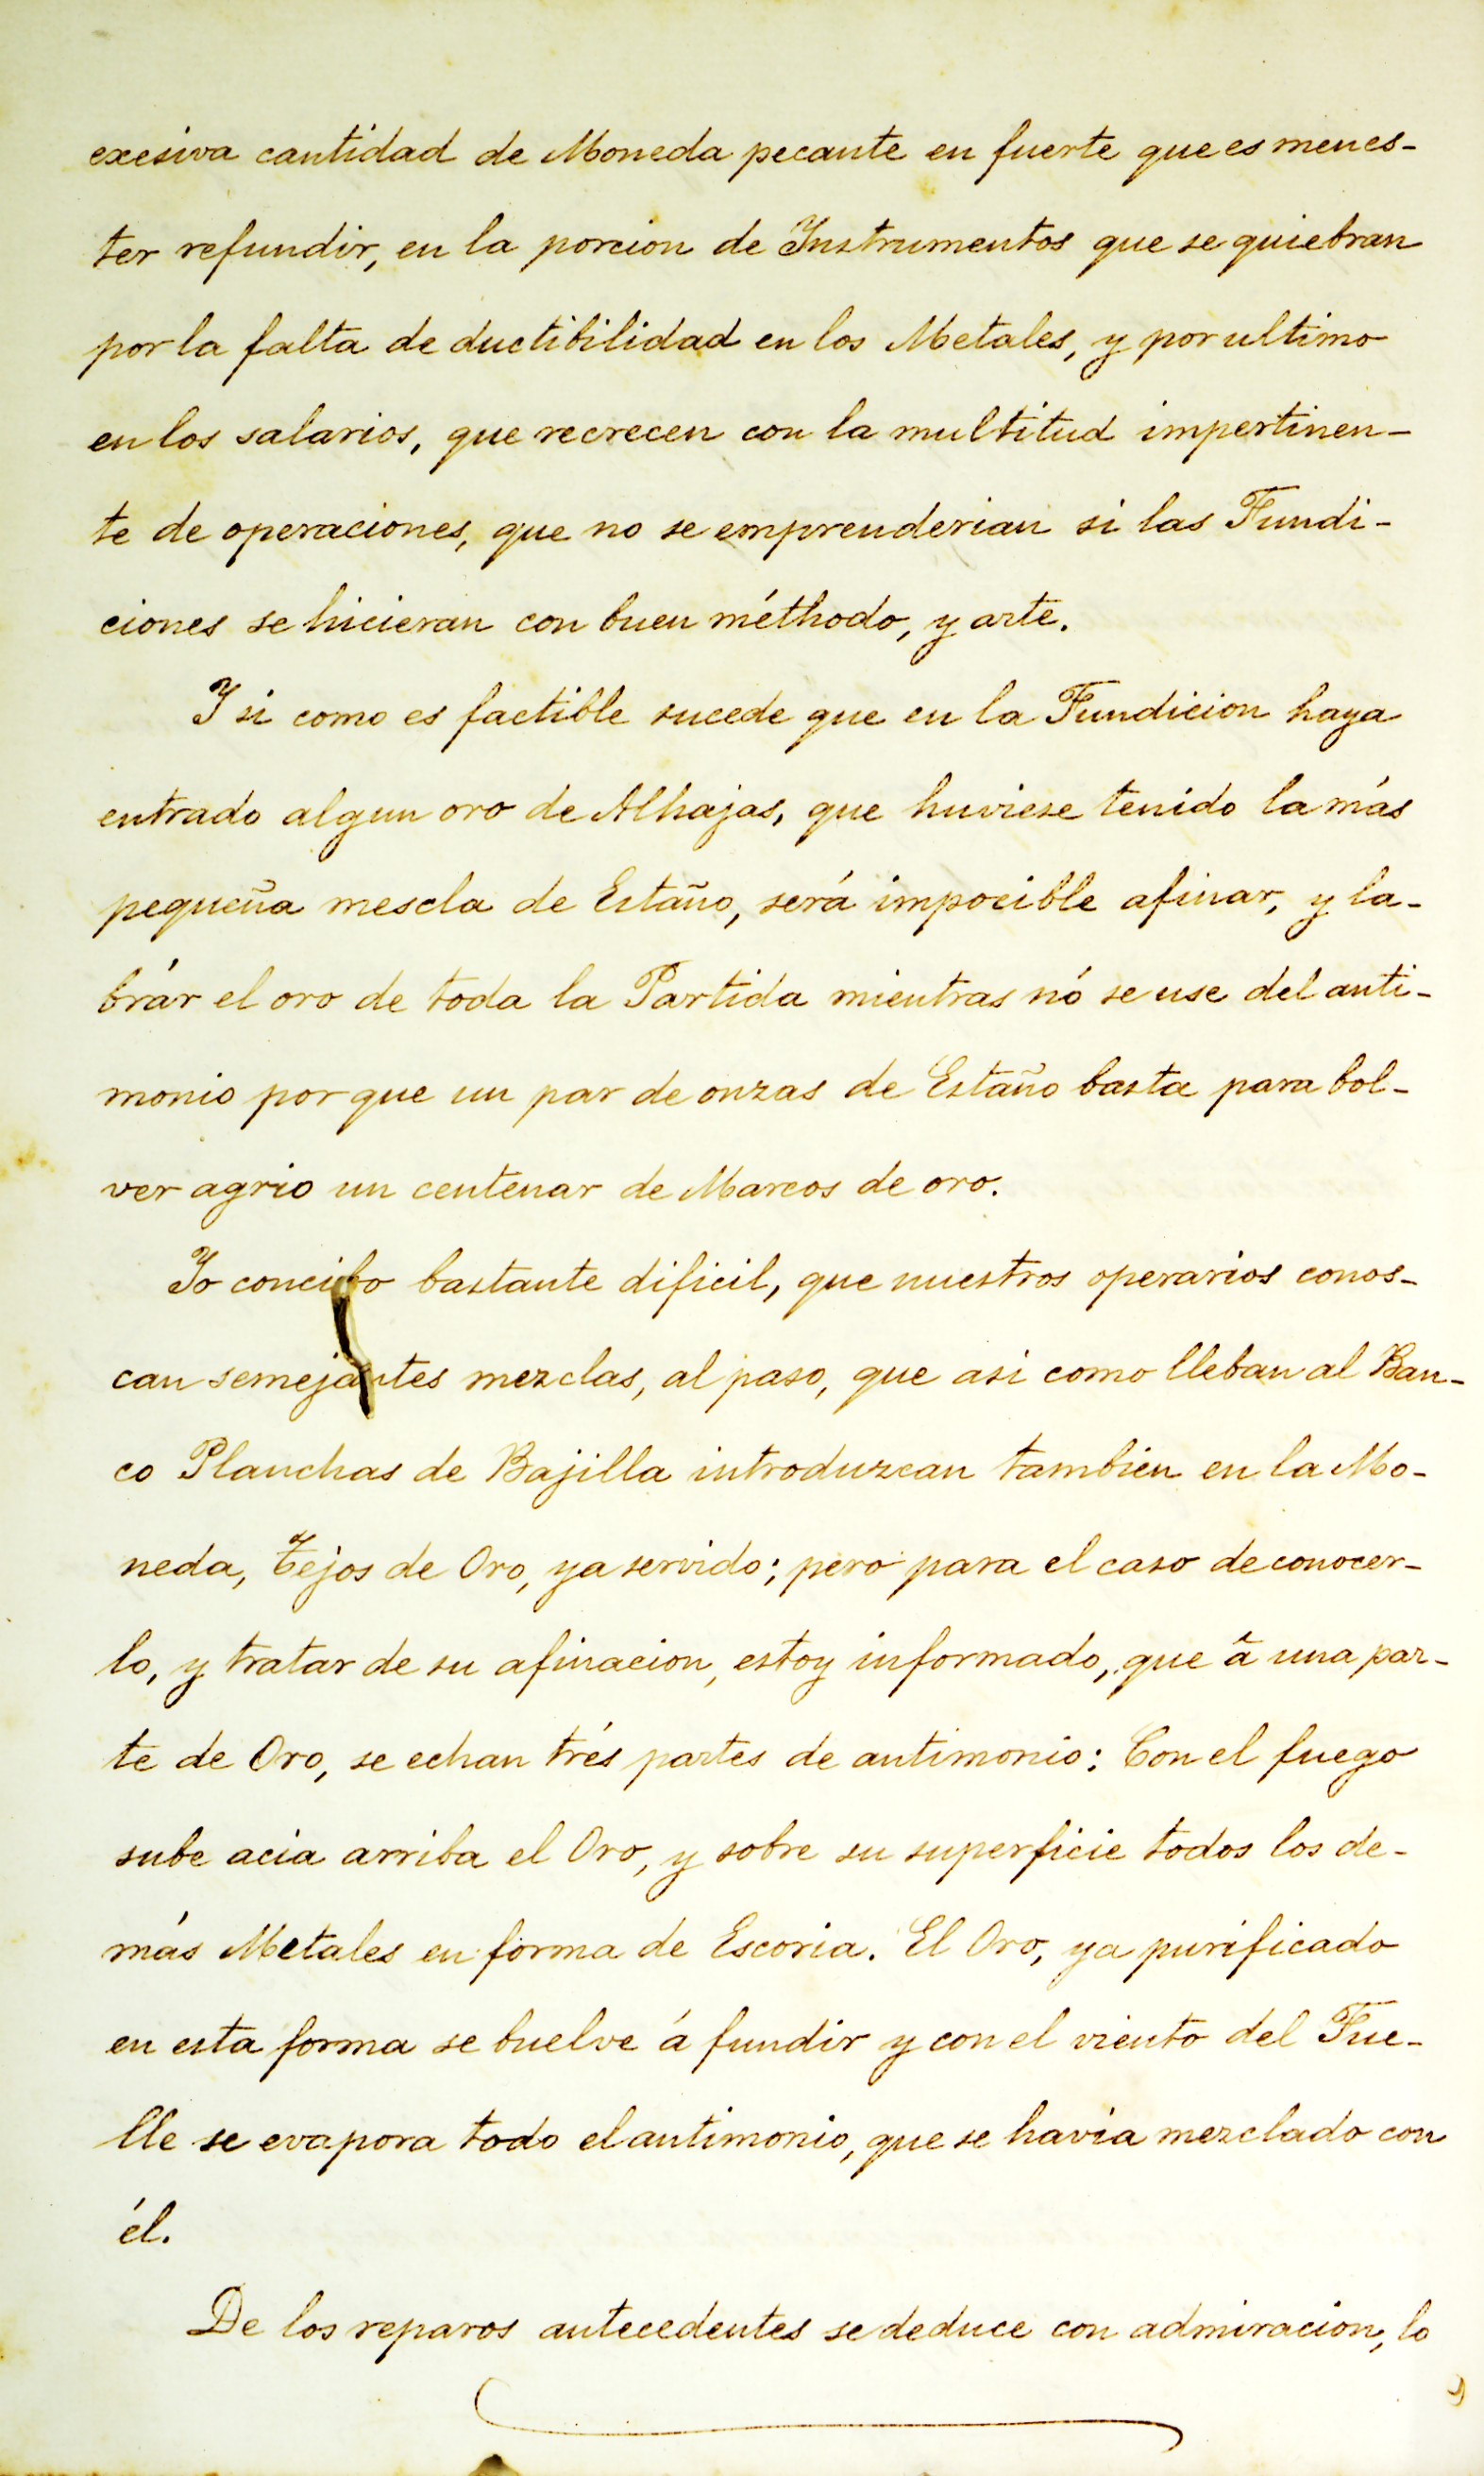 exesiva cantidad de Moneda pecante en fuerte que es menes-
ter refundir, en la porcion de Instrumentos que se quiebran
por la falta de ductibilidad en los Metales, y por ultimo
en los salarios, que recrecen con la multitud impertinen-
te de operaciones, que no se emprenderian si las Fundi-
ciones se hicieran con buen méthodo, y arte.
Y si como es factible sucede que en la Fundicion haya
entrado algun oro de Alhajas, que huviese tenido la más
pequeña mescla de Estaño, será impocible afinar, y la-
brár el oro de toda la Partida mientras nó se use del anti-
monio por que un par de onzas de Estaño basta para bol-
ver agrio un centenar de Marcos de oro.
Yo concibo bastante dificil, que nuestros operarios conos-
can semejantes mezclas, al paso, que asi como lleban al Ban-
co Planchas de Bajilla introduzcan tambien en la Mo-
neda, Tejos de Oro, ya servido; pero para el caso de conocer-
lo, y tratar de su afinacion, estoy informado, que â una par-
te de Oro, se echan trés partes de antimonio: Con el fuego
sube acia arriba el Oro, y sobre su superficie todos los de-
más Metales en forma de Escoria. El Oro, ya purificado
en esta forma se buelve á fundir y con el viento del Fue-
lle se evapora todo el antimonio, que se havia mezclado con
él.
De los reparos antecedentes se deduce con admiracion, lo